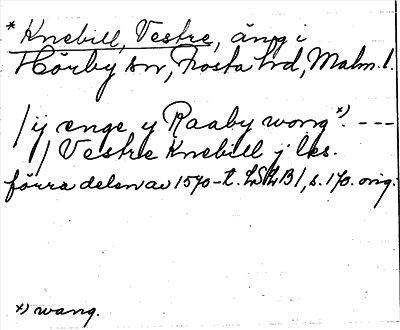 * Knebill, Vestre, äng i
Hörby sn, Frosta hd, Malm. l.
/ ij enge y Raaby wong x). ---
/ Vestre Knebill j lks.
förra delen av 1570-t. LSLB1, s. 170. orig.
x) wang.